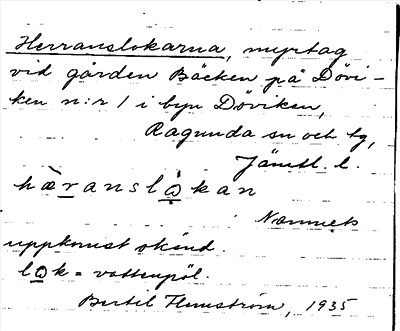 Herranslokarna, myrtag
vid gården Bäcken på Dövi-
ken n:r 1 i byn Döviken,
Ragunda sn och tg,
Jämtl. l.
hæranslo̱kan
Namnets
uppkomst okänd.
lo̱k = vattenpöl.
Bertil Flemström, 1935